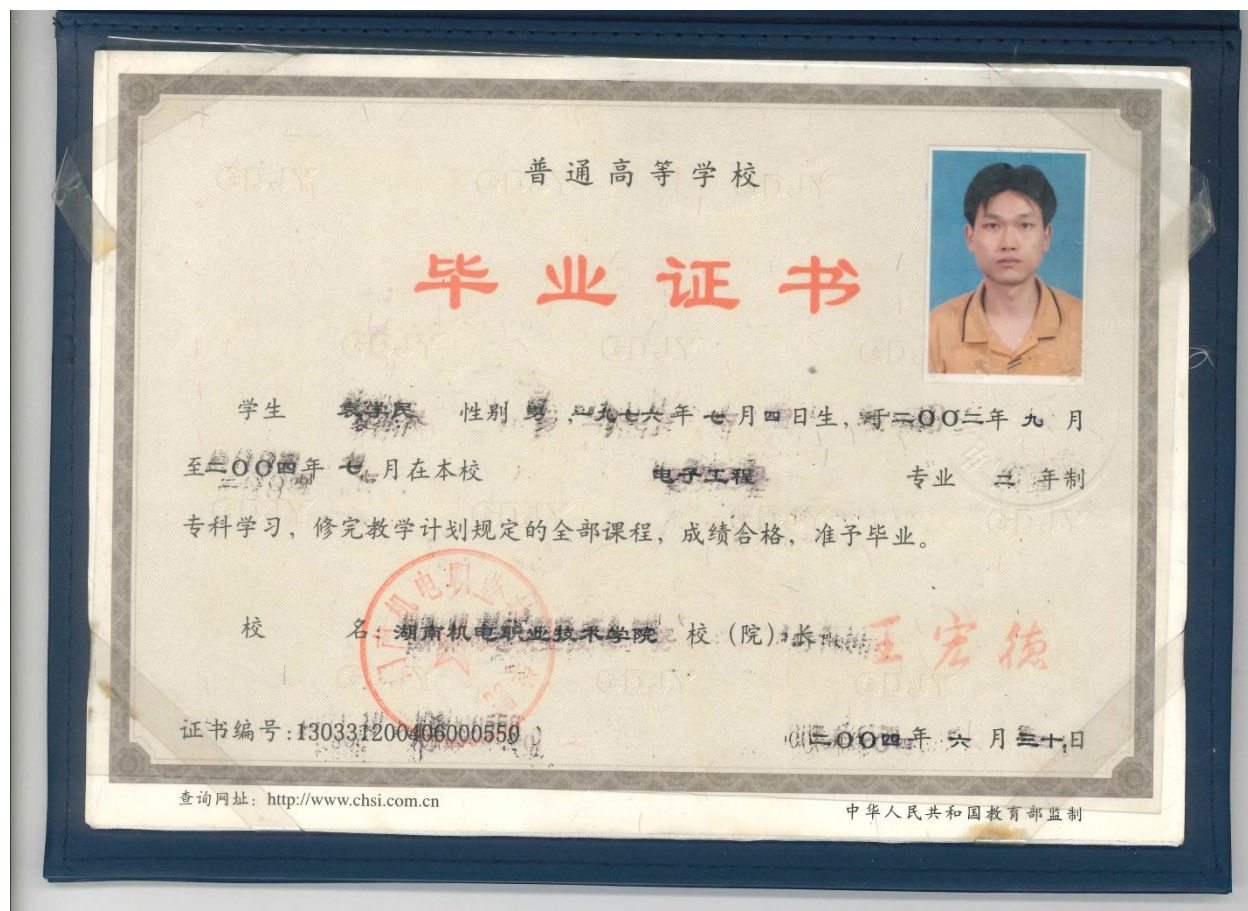 普通高等学校
毕业证书
学生 袁学民 性别 男，一九七六年七月四日生，于二〇〇二年九月
至二〇〇四年七月在本校 电子工程 专业 二年制
专科学习，修完教学计划规定的全部课程，成绩合格，准予毕业。
校 名：湖南机电职业技术学院 校（院）长： 王宏德
证书编号：130331200406000550
二〇〇四年六月三十日
查询网址：http://www.chsi.com.cn
中华人民共和国教育部监制